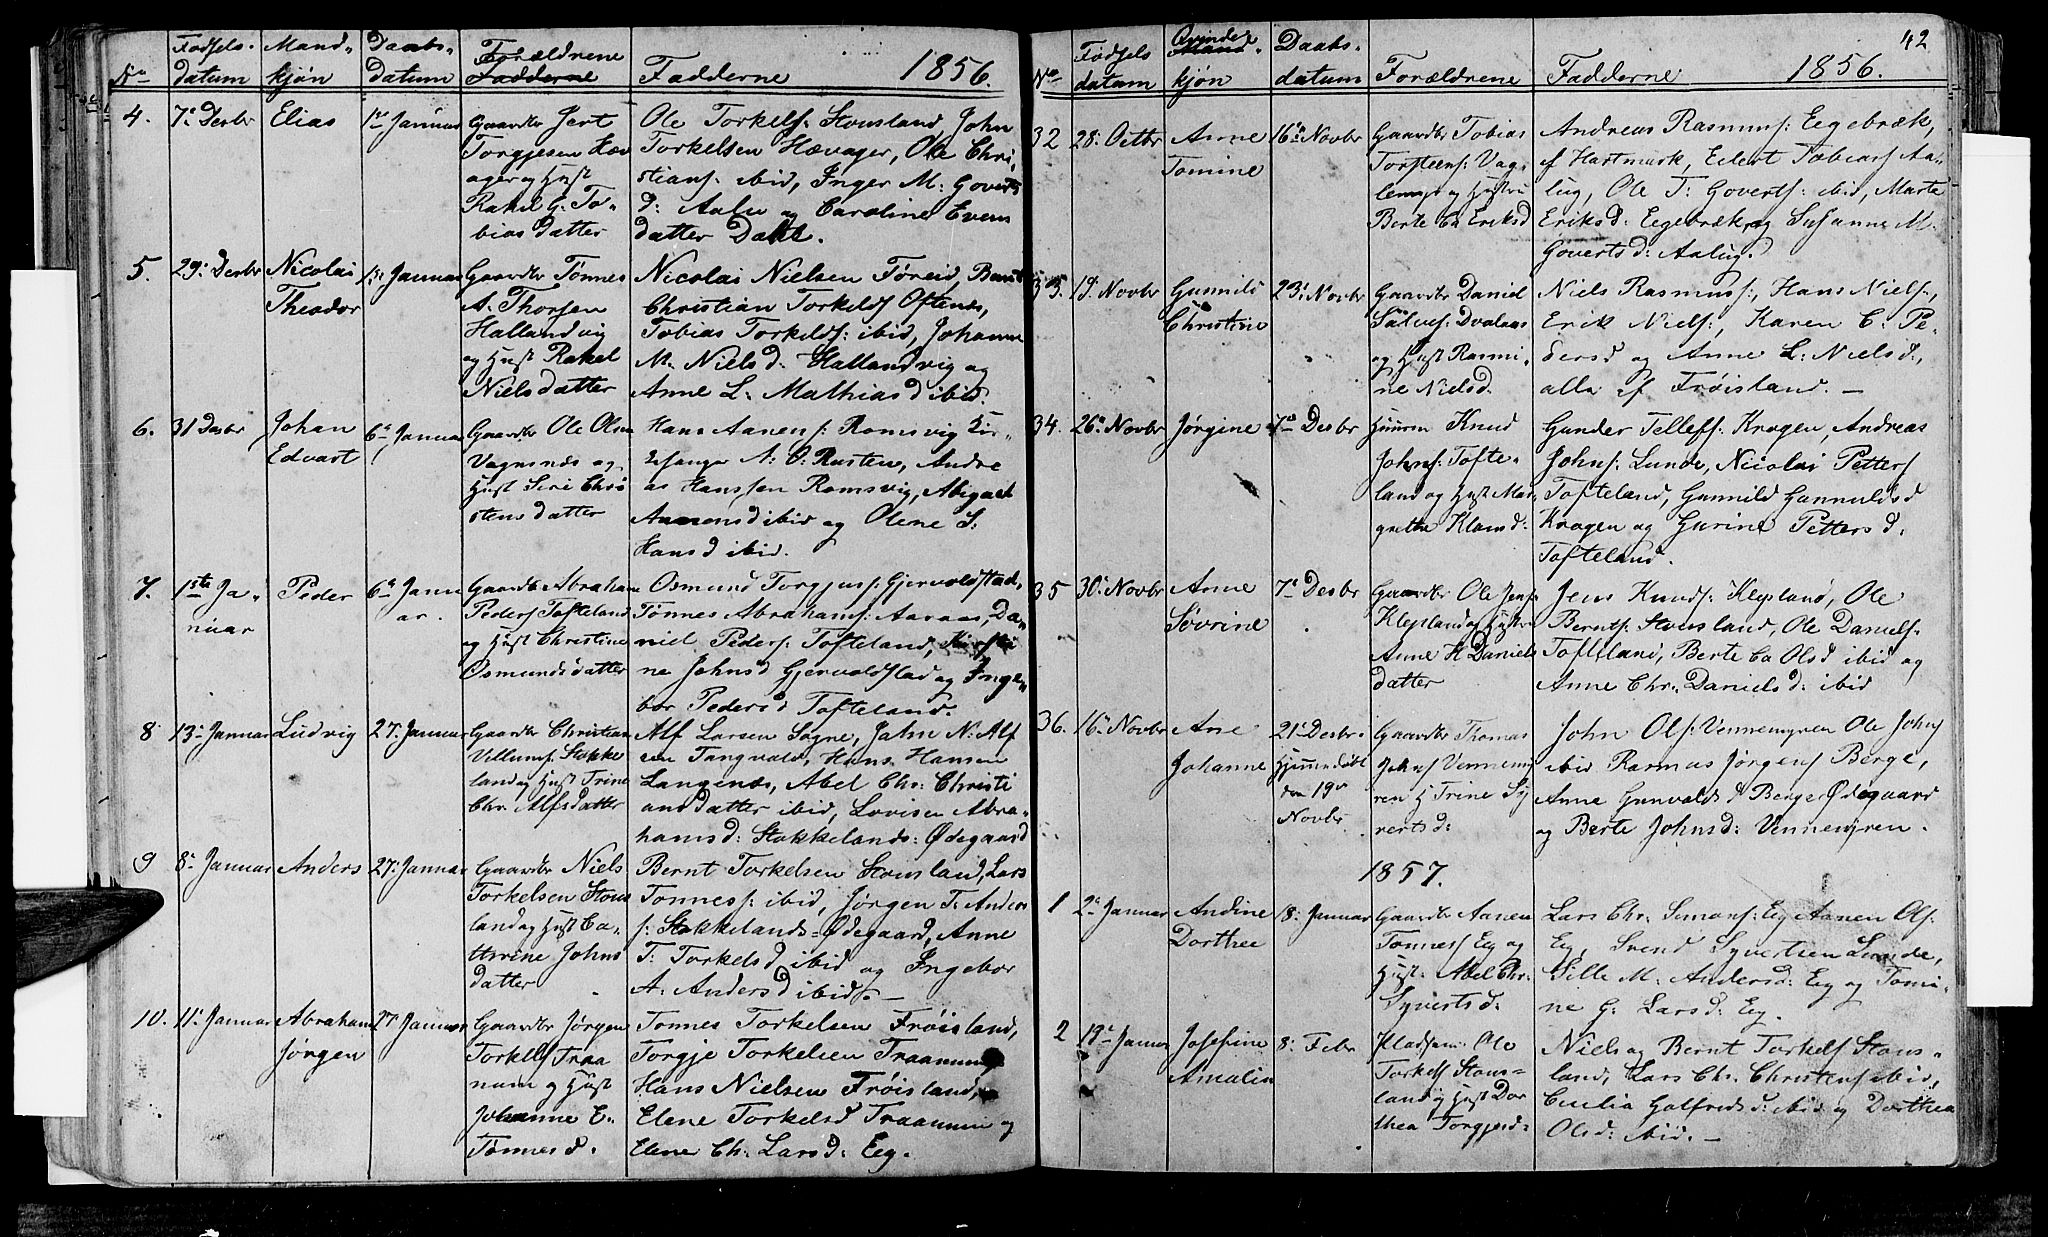 No Fødsels- datum Mand- kjøn Daabs- datum Forældrene Fadderne Fadderne 1856.
4. 7de Desbr Elias 1ste Januar
Gaardbr Jert
Torgjesen Hæv
ager og Hust
Rakel G. To-
bias datter
Ole Torkelss: Stousland, John
Torkelsen Hævager, Ole Chri
stians: ibid, Inger M: Goverts
d: Aalu og Caroline Evens
datter Dahl.
5. 29: Desbr Nicolai
Theodor
13: Januar
Gaardbr Tønnes
A. Thorsen
Hallandvig
og Hust Rakel
Nielsdatter
Nicolai Nielsen Føreid, Band
Christian Torkelss Oftenæs,
Tobias Torkelds: ibid, Johanne
M. Nielsd: Hallandvig og
Anne L. Mathiasd ibid.
6. 31 Desbr Johan
Edvart
6te Januar
Gaardbr Ole Olsen
Vagnsnæs og
Hust Seri Chri
stens datter
Hans Aanens: Romsvig, Kir-
A: O: Rusten, Andre
as Hanssen Romsvig, Abigael
Aanensd ibid og Olene S:
Hansd ibid.
7. 1ste Ja-
nuar
Peder
6te Janu
ar.
Gaardbr Abraham
Peders: Tofteland
og Hust Christine
Osmundsdatter
Osmund Torgjuss: Gjervoldstad,
Tønnes Abrahams: Aaraas, Da-
niel Peders: Tofteland, Kirsti
ne Johnsd Gjervoldstad og Inge-
bor Pedersd Tofteland.
8 13de Januar Ludvig 27: Januar
Gaardbr Christian
Villums: Stokke
land og Hust Trine
Chr. Alfsdatter
Alf Larsen Søgne, Jahn N: Alf
sen Tangvald, Hans Hansen
Langenæs, Abel Chr: Christi
andatter ibid, Lovisen Abra-
hamsd: Stokkelands: Ødegaard
9 8: Januar Anders 27: Januar
Gaardbr Niels
Torkelsen Stous
land og Hust Ca-
thrine Johns
datter
Bernt Torkelsen Stousland, Lars
Tonness: ibid, Jørgen T: Anders
s: Stokkelands=Ødegaard, Anne
T: Torkelsd ibid og Ingebor
A. Andersd ibid. —
10. 11: Januar Abraham
Jørgen
27: Januar
Gaardbr Jørgen
Torkels: Traa
nam og Hust
Johanne E.
Tønnesd.
Tonnes Torkelsen Frøisland,
Torgje Torkelsen Traanum
Hans Nielsen Frøisland,
Elene Torkelsd Traanum og
Elene Ch: Larsd: Eeg.
42
No Fødsels datum Qvinde- kjøn Daabs- datum Forældrene Fadderne 1856.
32 28: Octbr Anne
Tomine
16de Novbr
Gaardbr Tobias
Torsteens: Vag-
og Hustru
Berte Ca Eriksd
Andreas Rasmuss: Eegebræk,
af Hartmark, Eilert Tobiass Aa-
lug, Ole T: Goverts: ibid, Marte
Eriksd: Eegebræk og Susanne M.
Govertsd: Aalug.
33. 19: Novbr Gunnild
Christine
23: Novbr
Gaardbr Daniel
Salves: Dvalaas
og Hust Rasmi-
ne Nielsd.
Niels Rasmuss:, Hans Niels:,
Erik Niels:, Karen C: Pe-
dersd og Anne L: Nielsd:,
alla af Frøisland. —
34. 26de Novbr Jørgine 7de Desbr
Huusm Knud
Johns: Tofte-
land og Hust Mar-
grethe Klamd:
Gunder Tellefs: Kragen, Andreas
Johns: Lunde, Nicolai Petters
Tofteland, Gunnild Gunnuldsd
Kragen og Gurine Pettersd:
Tofteland.
35 30: Novbr Anne
Søvrine
7de Desbr
Gaardbr Ole Jens:
Klepland og Hustr
Anne K Daniels
datter
Jens Knuds: Klepland, Ole
Bernts: Stousland, Ole Daniels:
Tofteland, Berte Ca Olsd ibid og
Anne Chr: Danielsd: ibid
36. 16de Novbr Ane
Johanne
21: Desbr:
Hjemmedøbt
den 19de
Novbr.
Gaardbr Thomas
Johns: Vennemy
ren H Trine Sy
vertsd:
John Ols: Vennemyren Ole Johns
ibid Rasmus Jørgens Berge,
Anna Gunvaldsd Berge Ødegaard
og Berte Johnsd: Vennemyren.
1857.
1 2de Januar Andine
Dorthee
18: Januar
Gaardbr Aanen
Tonness Eeg og
Hust: Abel Chr:
Syvertsd:
Lars Chr. Simons: Eeg Aanen Ols:
Eeg, Svend Syvertsen Lunde,
Sille M: Andersd: Eeg og Tomi-
ne G: Larsd: Eeg.
2 19de Januar Josefine
Amalia
8: Febr
Pladsm: Ole
Torkels Stous-
land og Hust Dor
thea Torgjersd:
Niels og Bernt Torkels Stous-
land, Lars Chr. Christens: ibid,
Cecilia Gotfredsd: ibid og Dorthea
Olsd: ibid. —